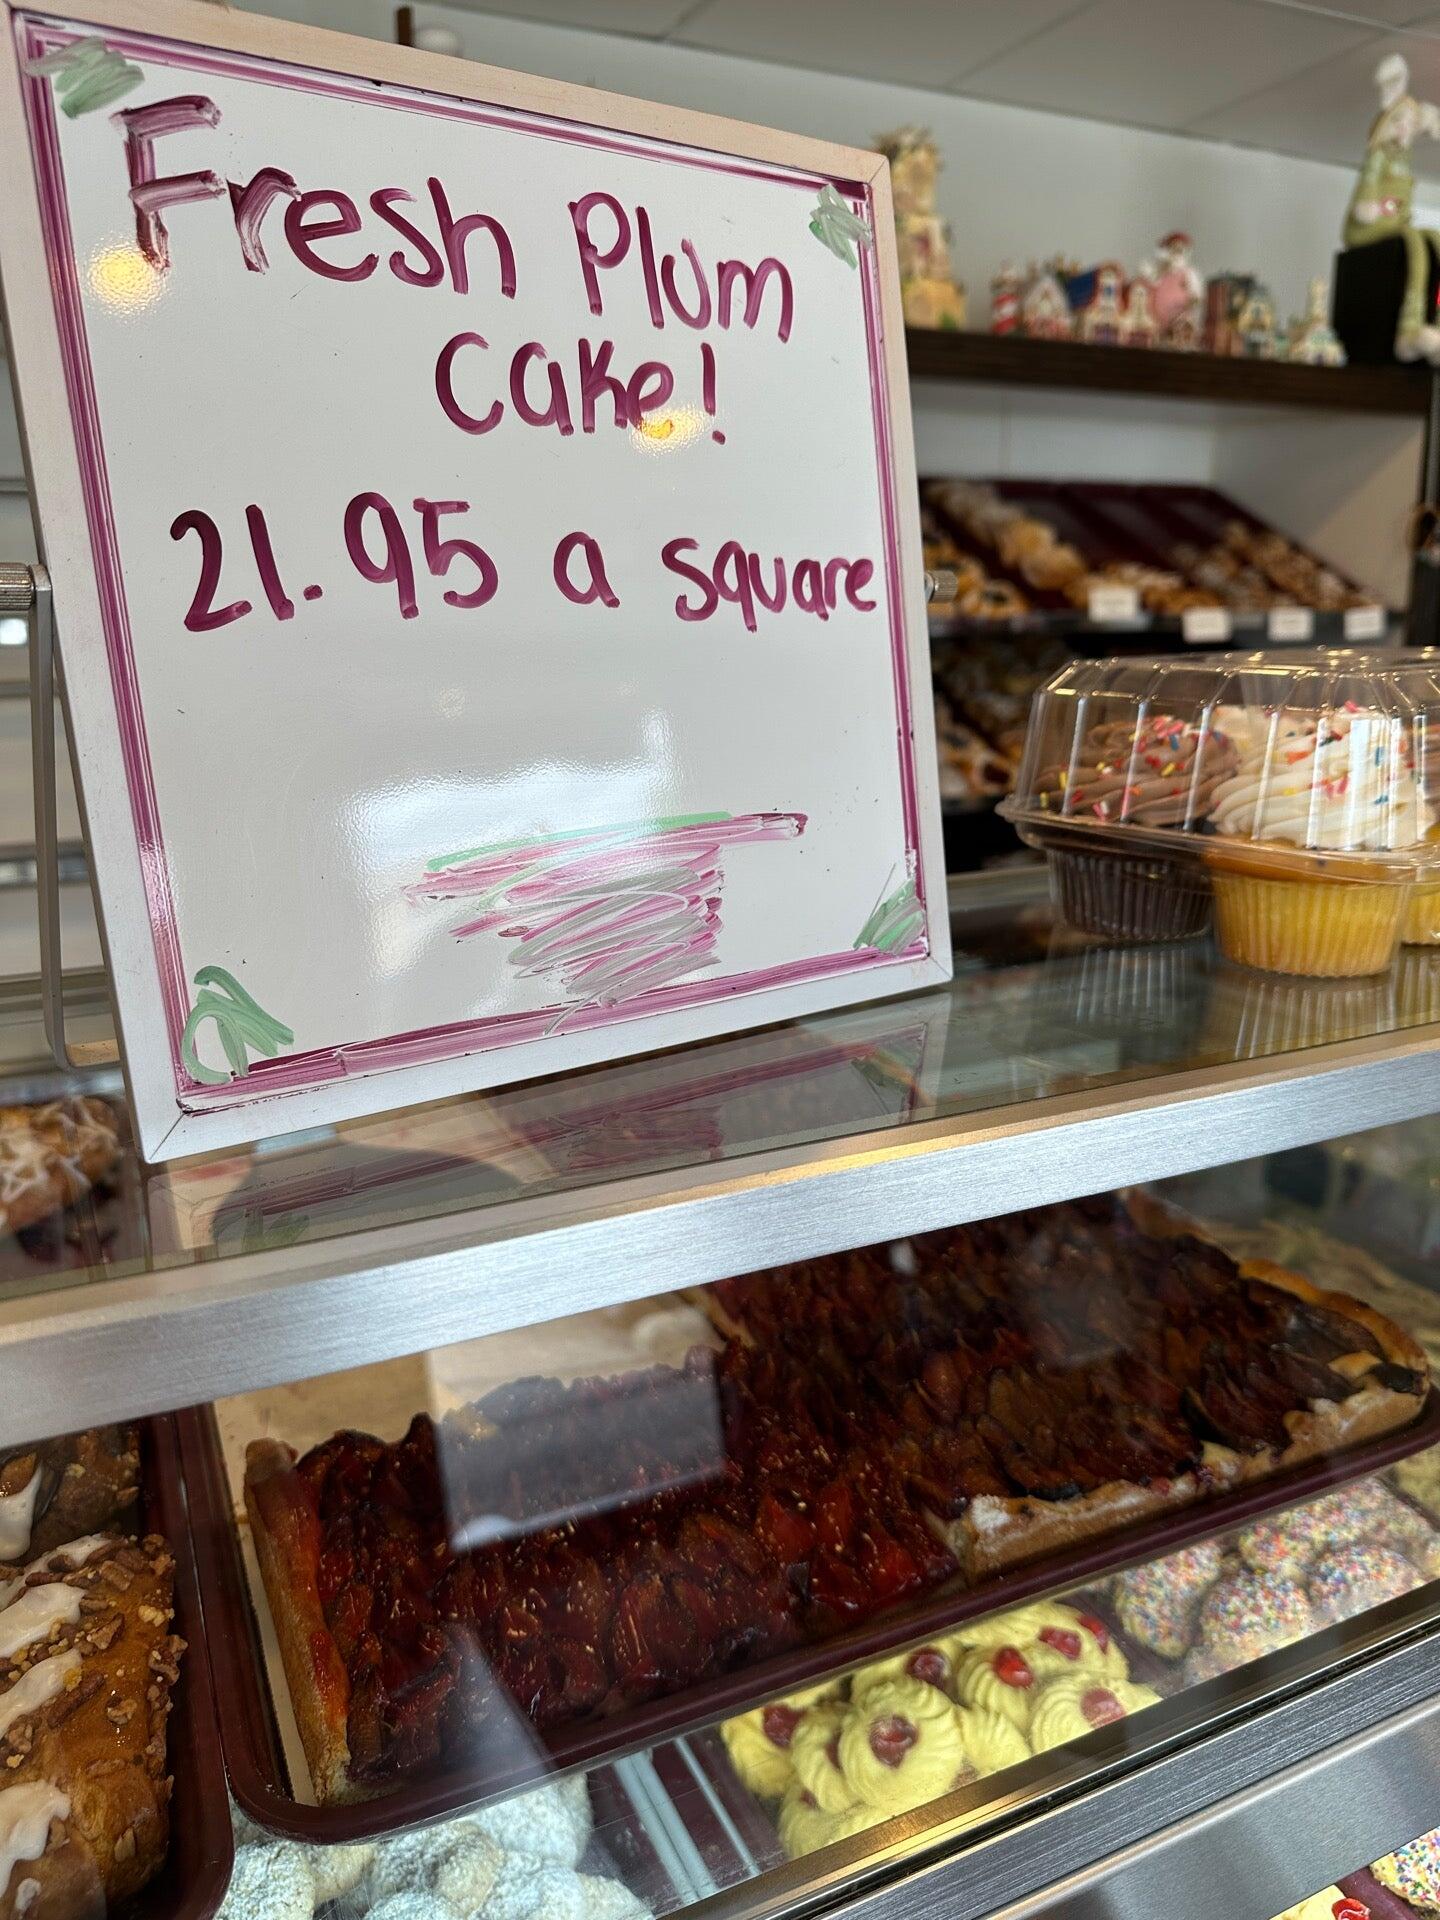 Fresh Plum
Cake!
21.95 a square